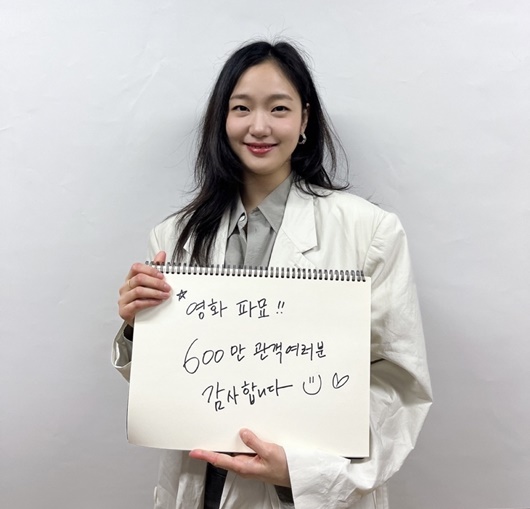 *영화 파묘!!
600만 관객여러분
감사합니다